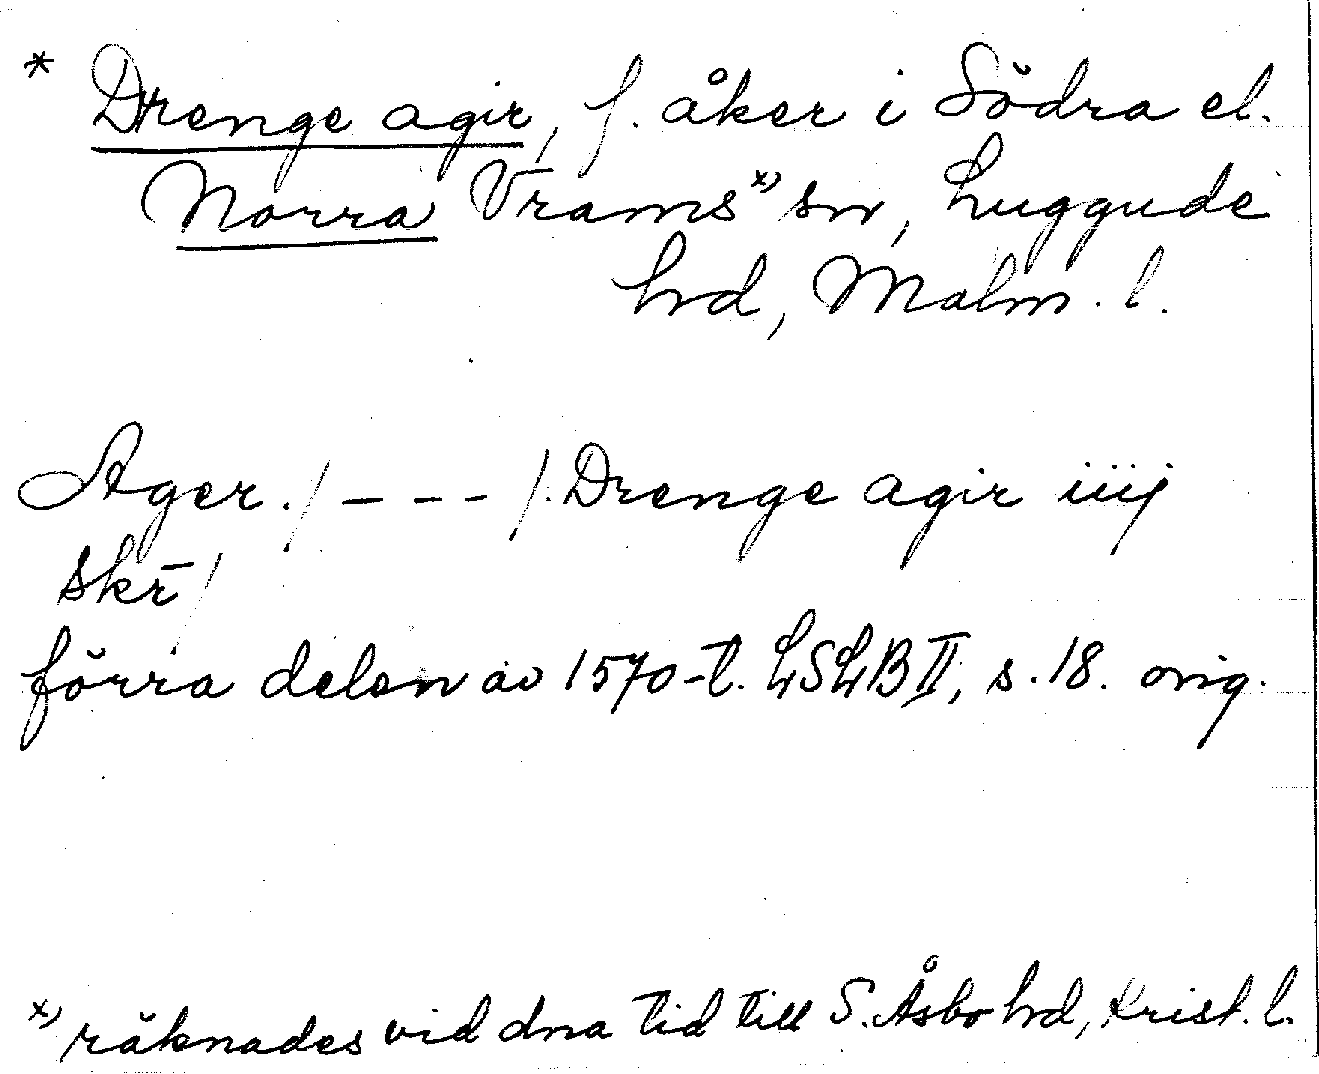 * Drenge agir, f. åker i Södra el.
Norra Vrams x) sn, Luggude
hrd, Malm. l.
Ager. / - - - /. Drenge agir iiij
skr̄ /
förra delen av 1570-t. LSLB II, s. 18. orig.
x) räknades vid dna tid till S. Åsbo hrd, Krist. l.